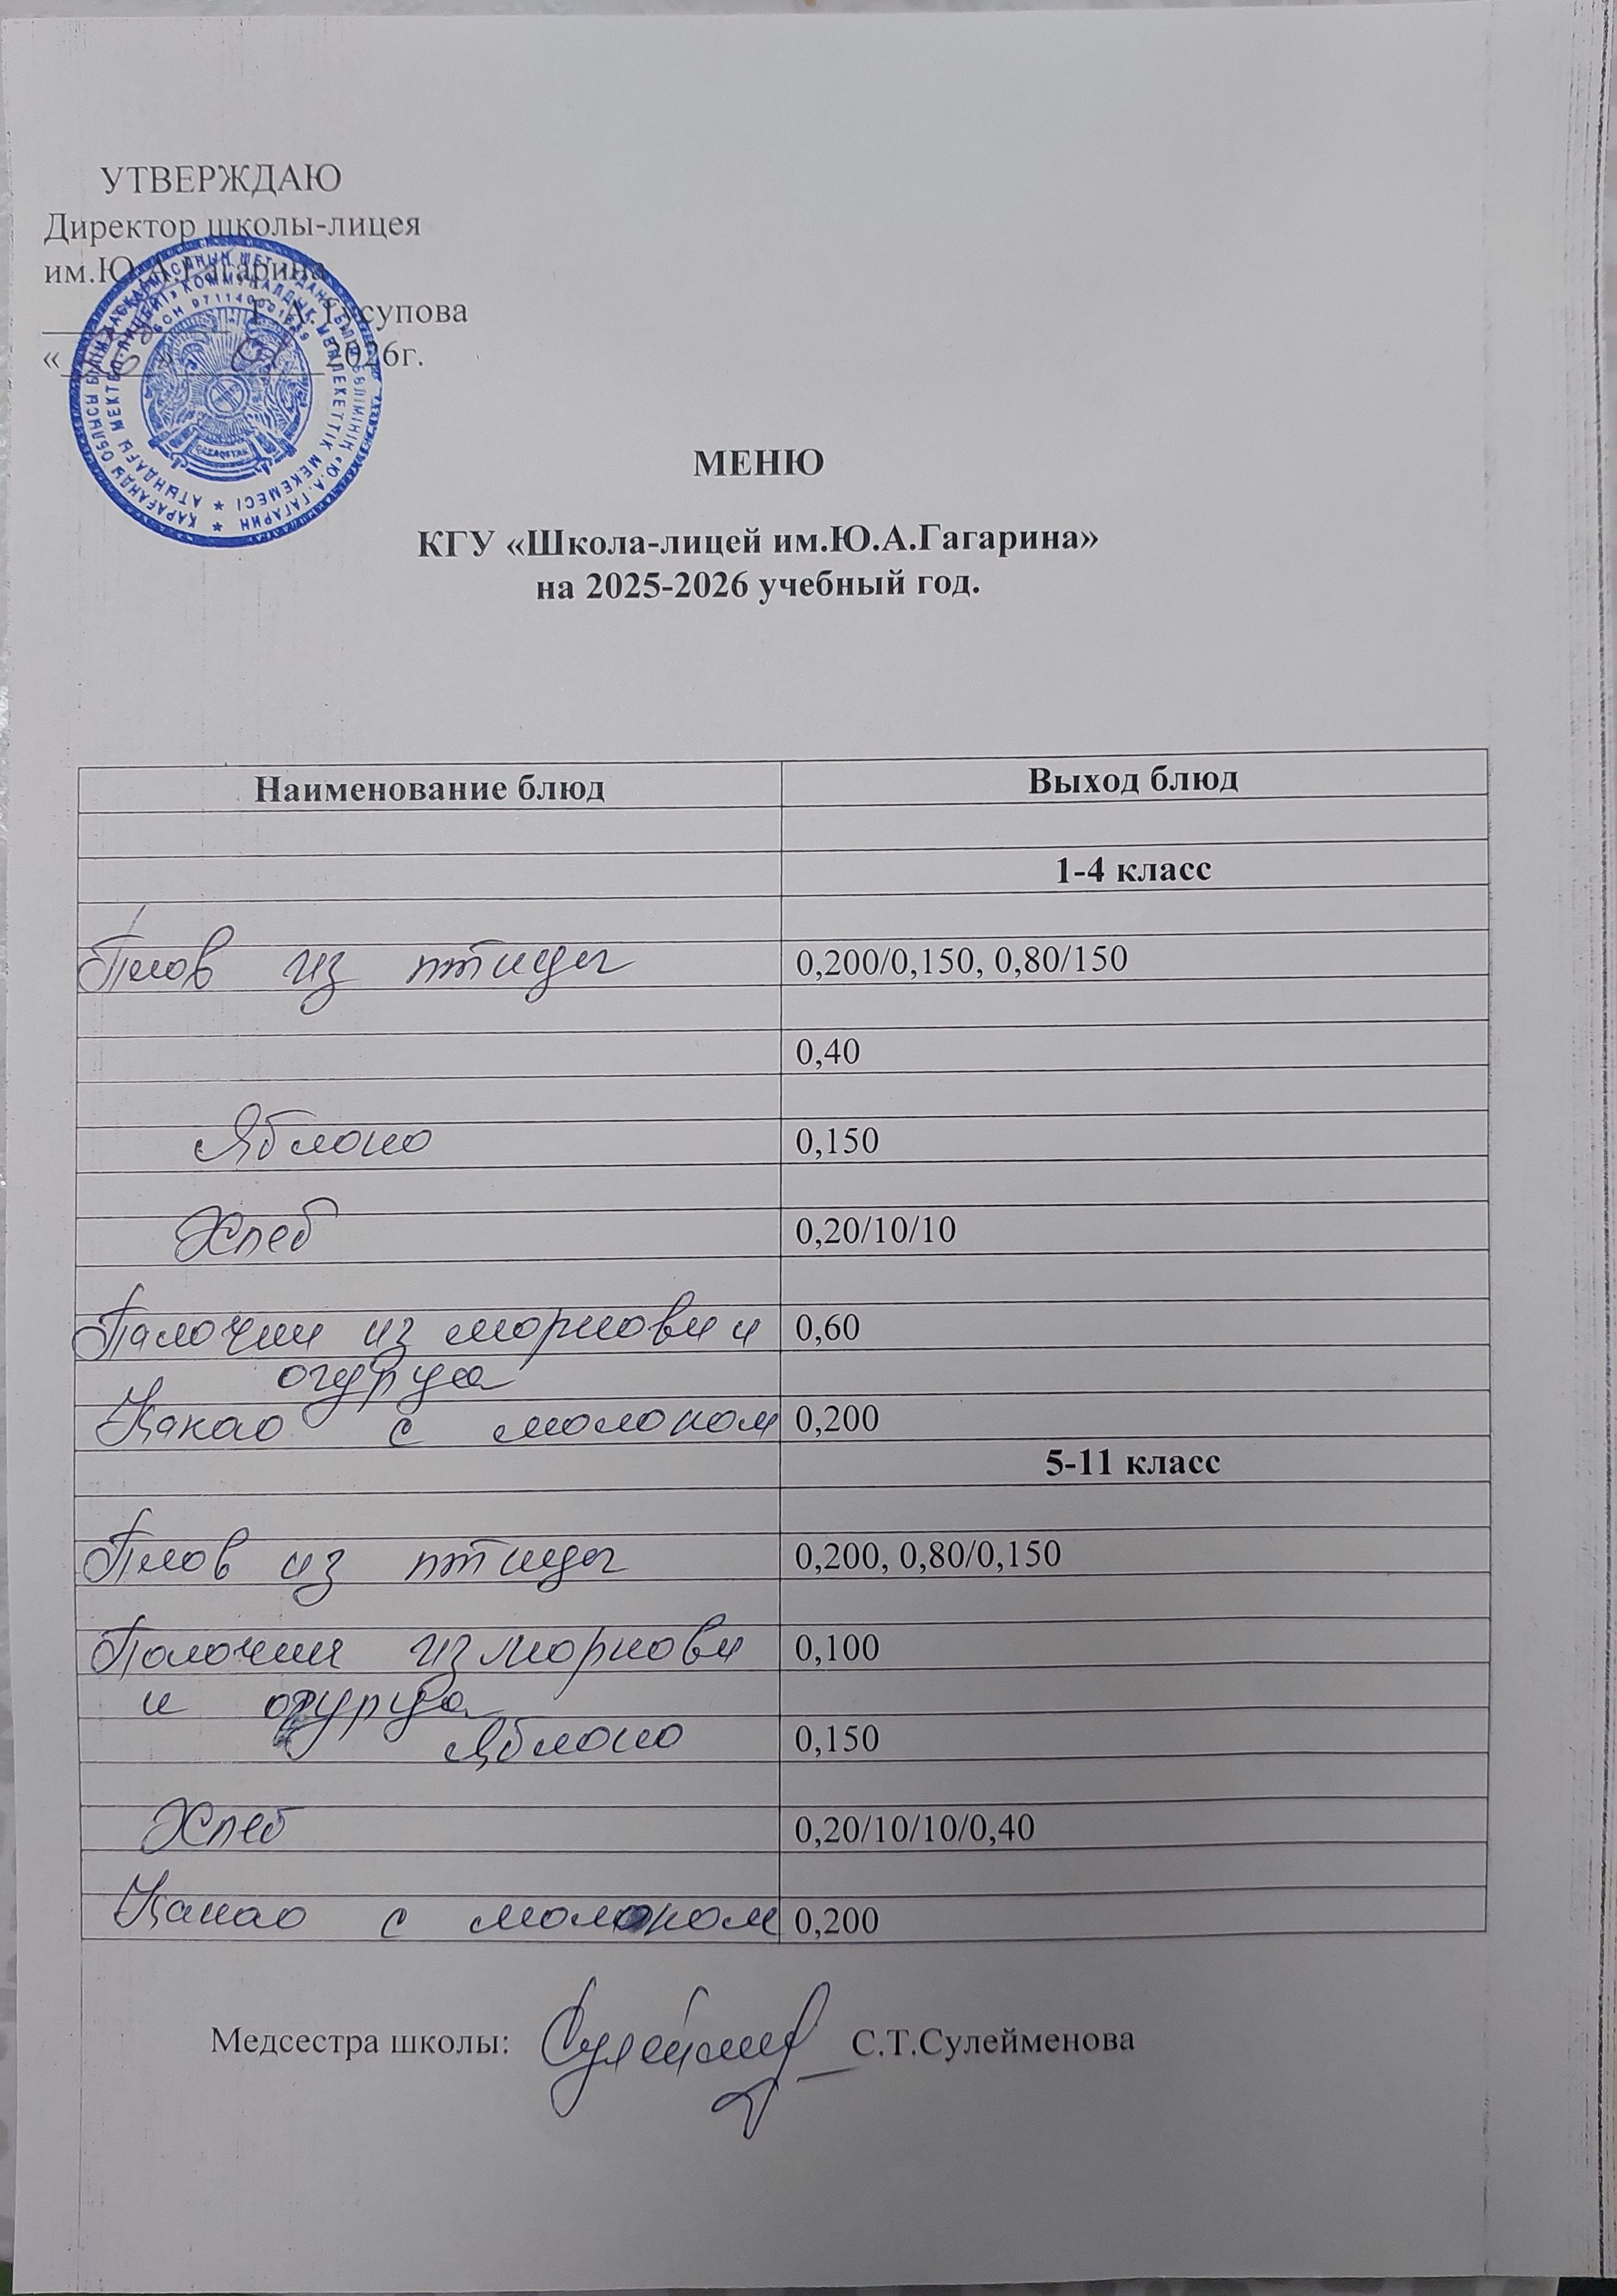 УТВЕРЖДАЮ
Директор школы-лицея
им.Ю.А.Гагарина
Г.А.Юсупова
« » 01 2026г.
МЕНЮ
КГУ «Школа-лицей им.Ю.А.Гагарина»
на 2025-2026 учебный год.
Наименование блюд Выход блюд
1-4 класс
Плов из птицы 0,200/0,150, 0,80/150
0,40
Яблоко 0,150
Хлеб 0,20/10/10
Палочки из моркови и 0,60
огурца
Какао с молоком 0,200
5-11 класс
Плов из птицы 0,200, 0,80/0,150
Палочки из моркови 0,100
и огурца
Яблоко 0,150
Хлеб 0,20/10/10/0,40
Какао с молоком 0,200
Медсестра школы: С.Т.Сулейменова